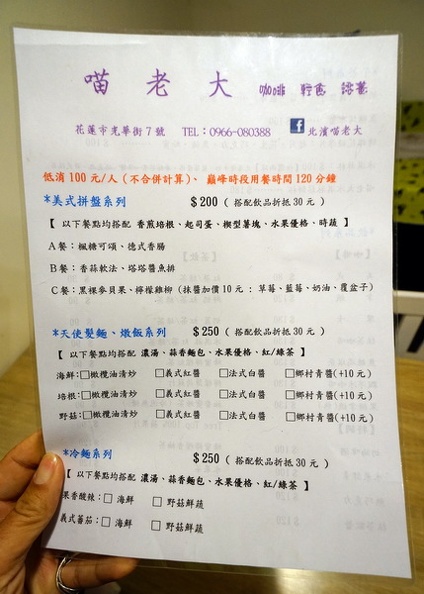 喵老大 咖啡 輕食
花蓮市光華街7號 TEL：0966-080388 北濱喵老大
低消100元/人(不合併計算)、 巔峰時段用餐時間120分鐘
*美式拼盤系列 $200 ( 搭配飲品折抵30元 )
【 以下餐點均搭配 香煎培根、起司蛋、楔型薯塊、水果優格、時蔬 】
A餐：楓糖可頌、德式香腸
B餐：香蒜軟法、塔塔醬魚排
C餐：黑棵麥貝果、檸檬雞柳 (抹醬加價10元：草莓、藍莓、奶油、覆盆子)
*天使髮麵、燉飯系列 $250 ( 搭配飲品折抵30元 )
【 以下餐點均搭配 濃湯、蒜香麵包、水果優格、紅/綠茶 】
海鮮：□橄欖油清炒 □義式紅醬 □法式白醬 □鄉村青醬(+10元)
培根：□橄欖油清炒 □義式紅醬 □法式白醬 □鄉村青醬(+10元)
野菇：□橄欖油清炒 □義式紅醬 □法式白醬 □鄉村青醬(+10元)
*冷麵系列 $250 ( 搭配飲品折抵30元 )
【 以下餐點均搭配 濃湯、蒜香麵包、水果優格、紅/綠茶 】
果香酸辣：□ 海鮮 □ 野菇鮮蔬
義式蕃茄：□ 海鮮 □ 野菇鮮蔬